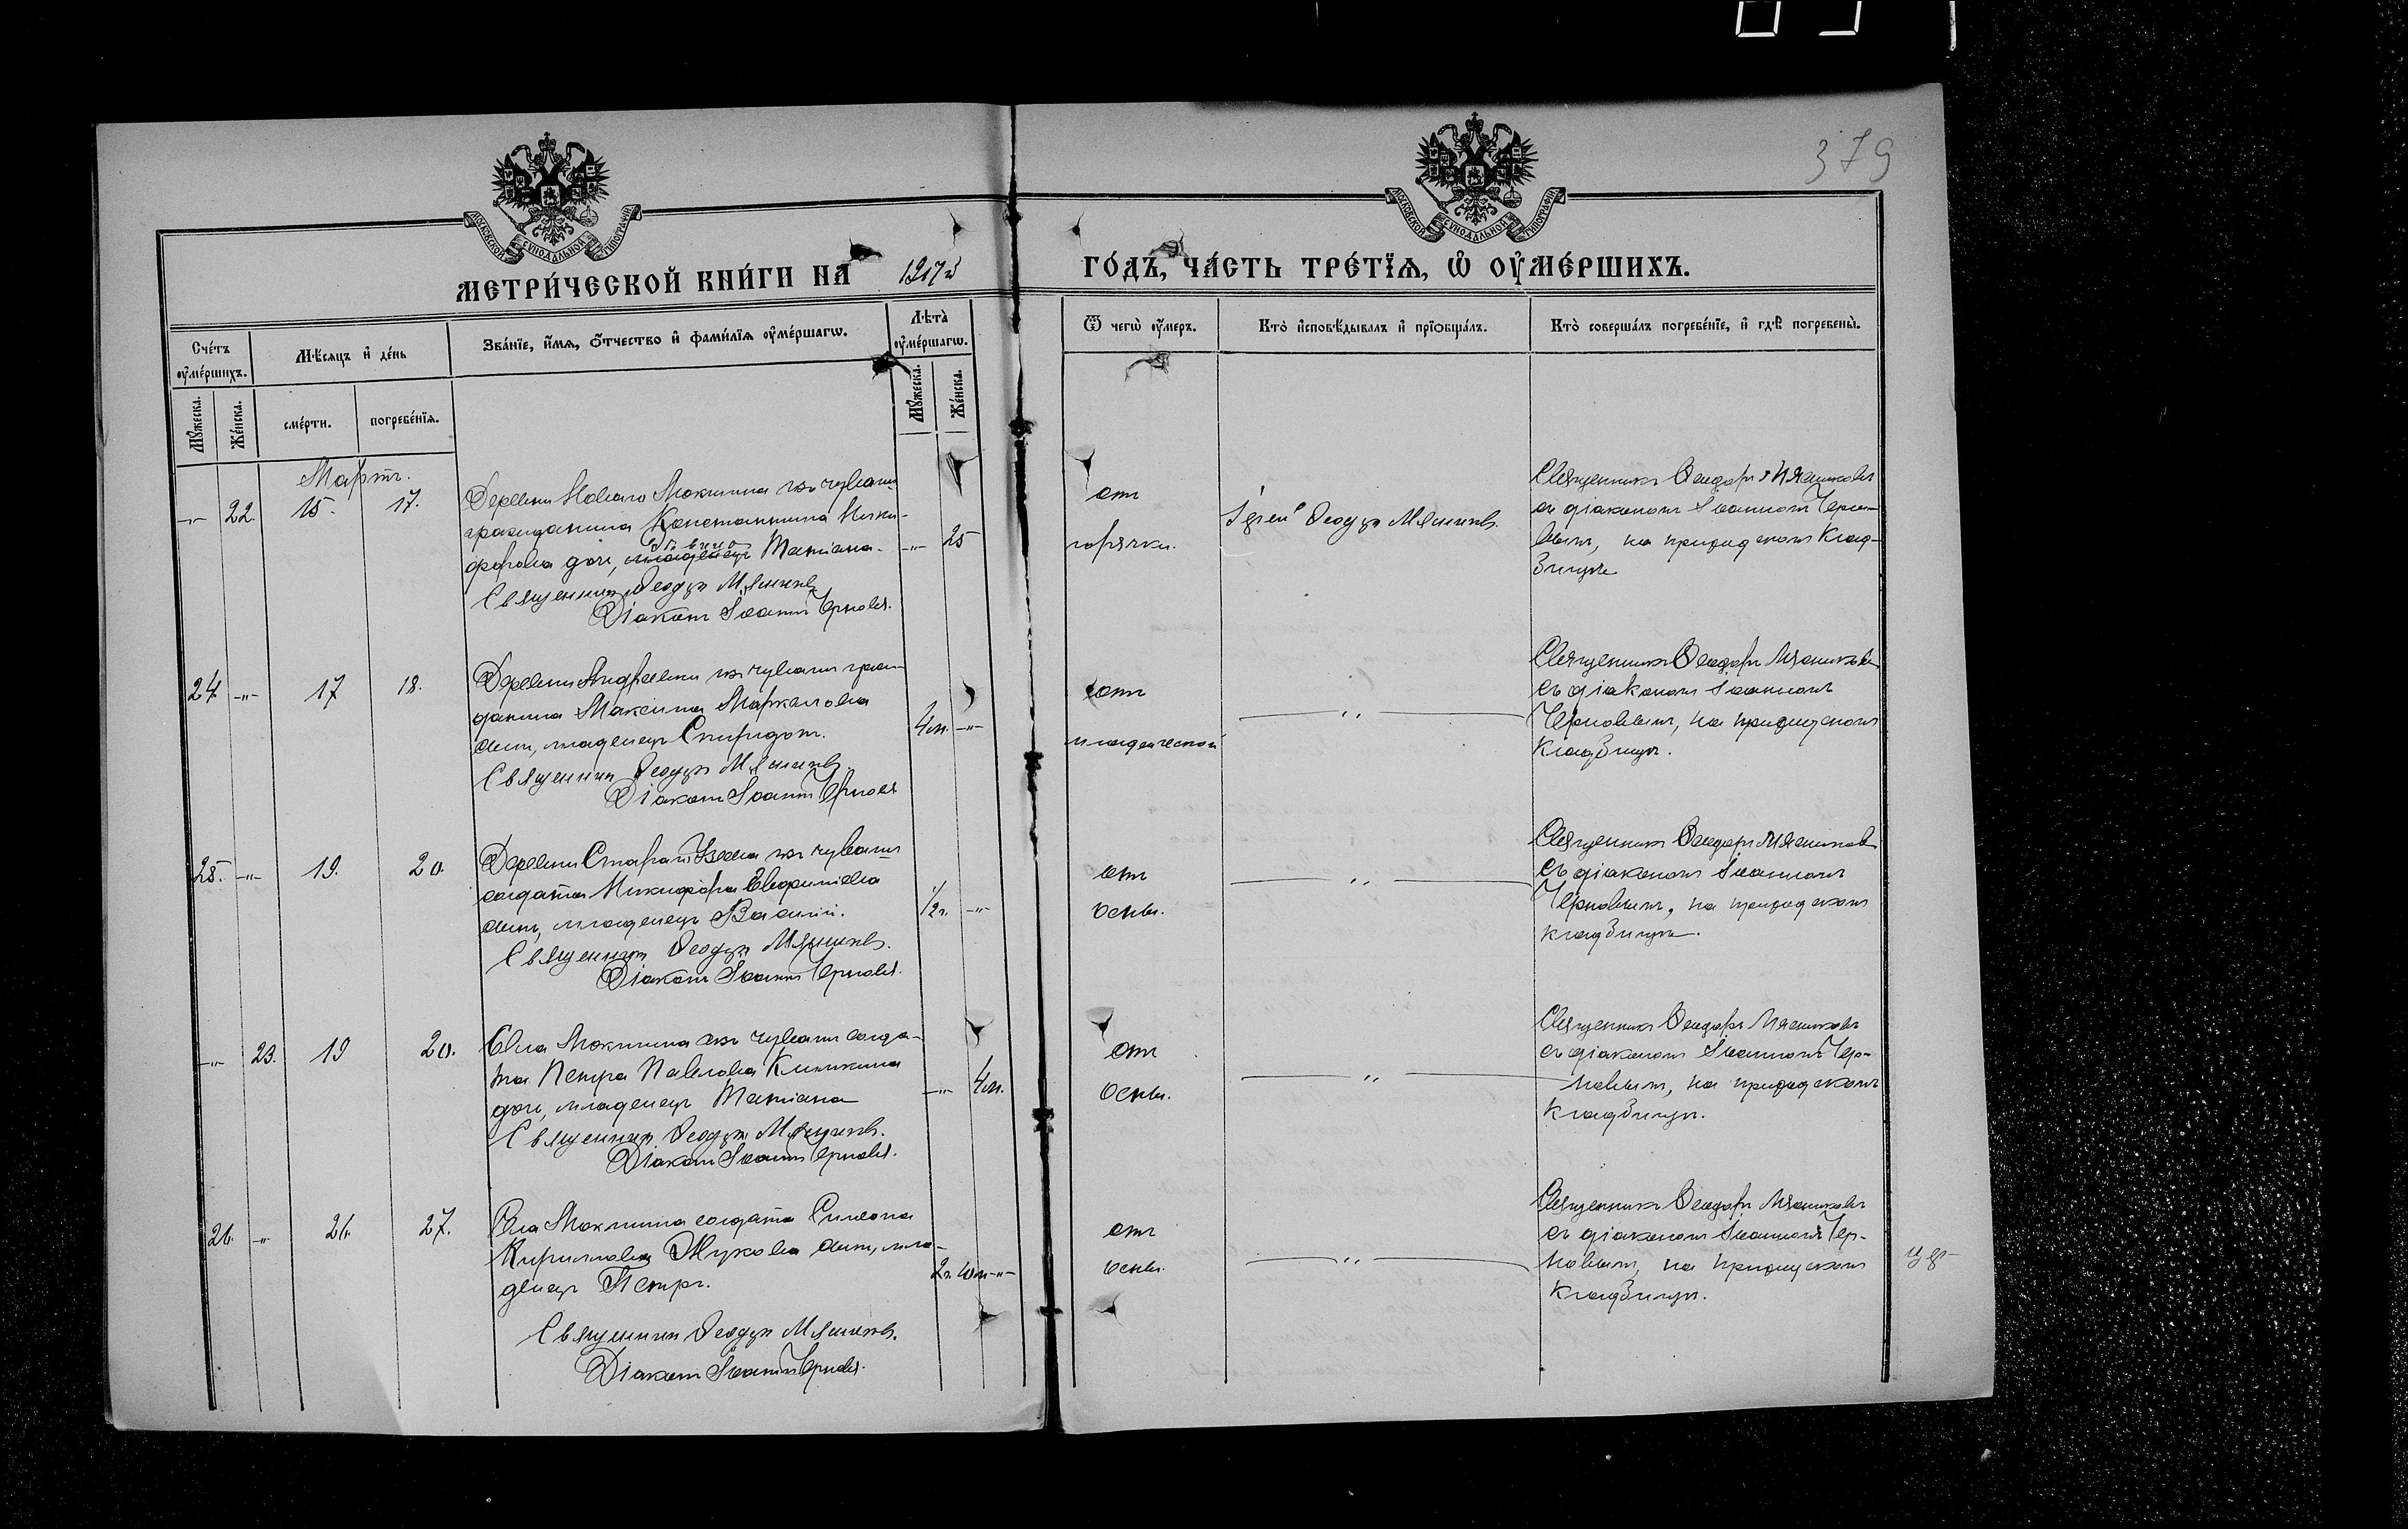 379
МОСКОВСКОЙ СѴНОДАЛЬНОЙ ТИПОГРАФІИ
МОСКОВСКОЙ СѴНОДАЛЬНОЙ ТИПОГРАФІИ
МЕТРИ́ЧЕСКОЙ КНИ́ГИ НА 1917й ГО́ДЪ, ЧА́СТЬ ТРЕ́ТЇѦ, Ѡ҆ ОУ҆МЕ́РШИХЪ.
Сче́тъ оу҆ме́ршихъ.
Мѣ́сѧцъ и҆ де́нь
Зва́нїе, и҆́мѧ, ѻ҆́тчество и҆ фами́лїѧ оу҆ме́ршагѡ.
Лѣ̀та̀ оу҆ме́ршагѡ.
Ѿ чегѡ̀ оу҆́меръ.
Кто̀ и҆сповѣ́дывалъ и҆ прїѡбща́лъ.
Кто̀ соверша́лъ погребе́нїе, и҆ гдѣ̀ погребены̀.
Мꙋ́жеска.
Же́нска.
сме́рти.
погребе́нїѧ.
Мꙋ́жеска.
Же́нска.
Мартъ.
-"- 22. 15. 17.
Деревни Новаго Мокшина изъ чувашъ
гражданина Константина Ники-
форова дочь, Татіана.
Священникъ Ѳеодоръ Мясниковъ
Діаконъ Іоаннъ Черновъ.
-"- 25
отъ
горячки.
Іерей Ѳеодоръ Мясниковъ.
Священникъ Ѳеодоръ Мясниковъ
съ діакономъ Іоанномъ Черно-
вымъ, на приходскомъ клад-
бищѣ
24. -"- 17 18.
Деревни Андреевки изъ чувашъ граж-
данина Максима Маркелова
сынъ, младенецъ Спиридонъ.
Священникъ Ѳеодоръ Мясниковъ.
Діаконъ Іоаннъ Черновъ
4 м. -"-
отъ
младенческой
-"-
Священникъ Ѳеодоръ Мясниковъ
съ діакономъ Іоанномъ
Черновымъ, на приходскомъ
кладбищѣ.
25. -"- 19. 20.
Деревни Старой изъ чувашъ
солдата Никифора
сынъ, младенецъ Василій.
Священникъ Ѳеодоръ Мясниковъ.
Діаконъ Іоаннъ Черновъ.
1/2 г. -"-
отъ
оспы.
-"-
Священникъ Ѳеодоръ Мясниковъ
съ діакономъ Іоанномъ
Черновымъ, на приходскомъ
кладбищѣ.
-"- 23. 19 20.
Села Мокшина изъ чувашъ солда-
та Петра Павлова
дочь, младенецъ Татіана
Священникъ Ѳеодоръ Мясниковъ.
Діаконъ Іоаннъ Черновъ.
-"- 4 м.
отъ
оспы.
-"-
Священникъ Ѳеодоръ Мясниковъ
съ діакономъ Іоанномъ Чер-
новымъ, на приходскомъ
кладбищѣ.
26. -"- 26. 27.
Села Мокшина солдата Симеона
Кириллова Жукова сынъ, мла-
денецъ Петръ.
Священникъ Ѳеодоръ Мясниковъ.
Діаконъ Іоаннъ Черновъ.
2 г. 10 м -"-
отъ
оспы.
-"-
Священникъ Ѳеодоръ Мясниковъ
съ діакономъ Іоанномъ Чер-
новымъ, на приходскомъ
кладбищѣ.